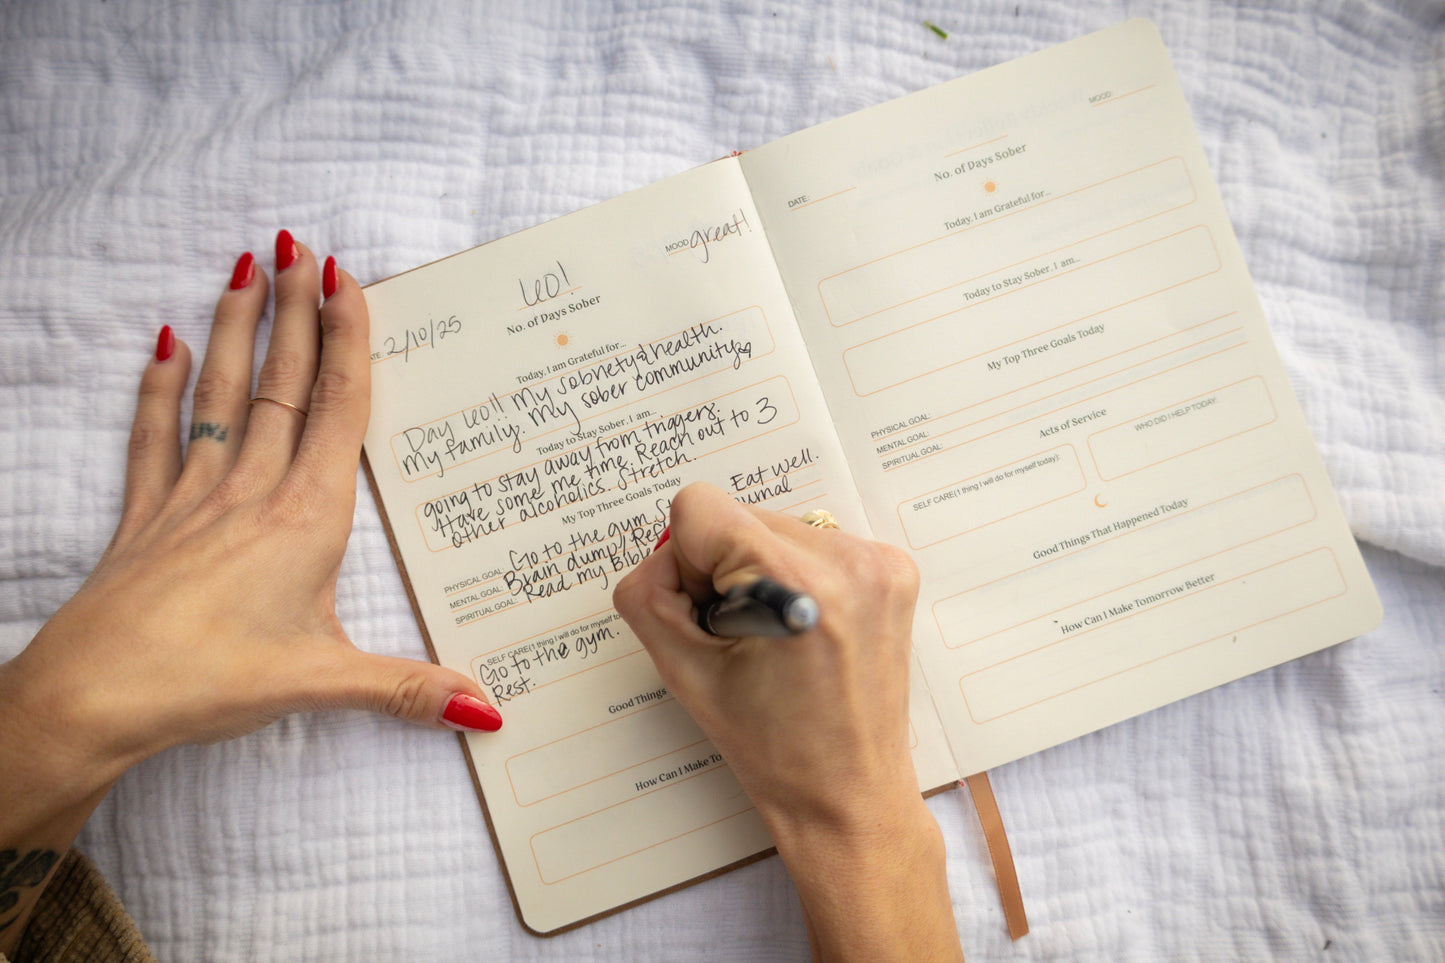 MOOD great!
60!
No. of Days Sober
ATE: 2/10/25
Today, I am Grateful for...
Day 60!! My sobriety & health.
My family. My sober community
Today to Stay Sober, I am...
going to stay away from triggers.
Have some me time. Reach out to 3
other alcoholics. Stretch.
My Top Three Goals Today
PHYSICAL GOAL: Go to the gym. Eat well.
MENTAL GOAL: Brain dump/
SPIRITUAL GOAL: Read my Bible
SELF CARE(1 thing I will do for myself
Go to the gym.
Rest.
Good Things
How Can I Make To
MOOD:
No. of Days Sober
DATE:
Today, I am Grateful for...
Today to Stay Sober, I am...
My Top Three Goals Today
PHYSICAL GOAL:
MENTAL GOAL:
SPIRITUAL GOAL:
Acts of Service
SELF CARE(1 thing I will do for myself today):
WHO DID I HELP TODAY:
Good Things That Happened Today
How Can I Make Tomorrow Better